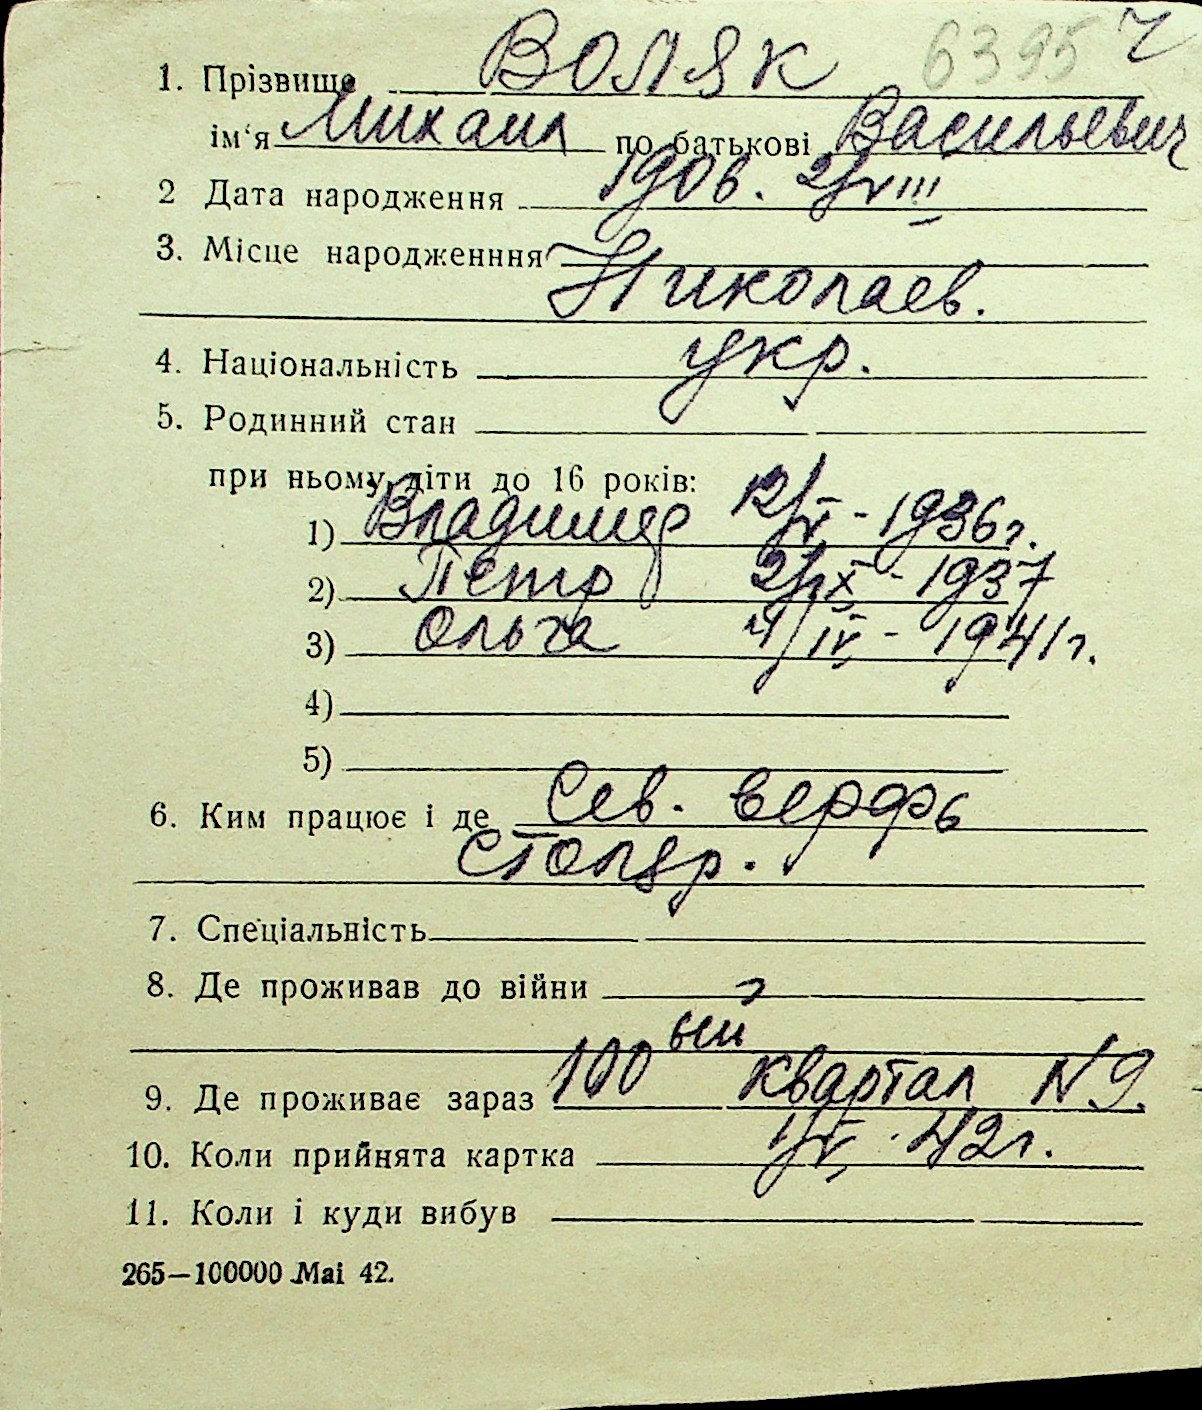 6395 Ч
1. Прізвище Воляк
ім‘я Михаил по батькові Васильевич
2 Дата народження 1906. 2/VIII
3. Місце народженння Николаев.
4. Національність укр.
5. Родинний стан
при ньому діти до 16 років:
1) Владимир 12/V - 1936г.
2) Петр 2/IX - 1937
3) Ольга 4/IV - 1941г.
4)
5)
6. Ким працює і де Сев. верфь
столяр.
7. Спеціальність
8. Де проживав до війни
9. Де проживає зараз 100ый квартал N 9.
10. Коли прийнята картка 1/V. 42г.
11. Коли і куди вибув
265—100000 Mai 42.